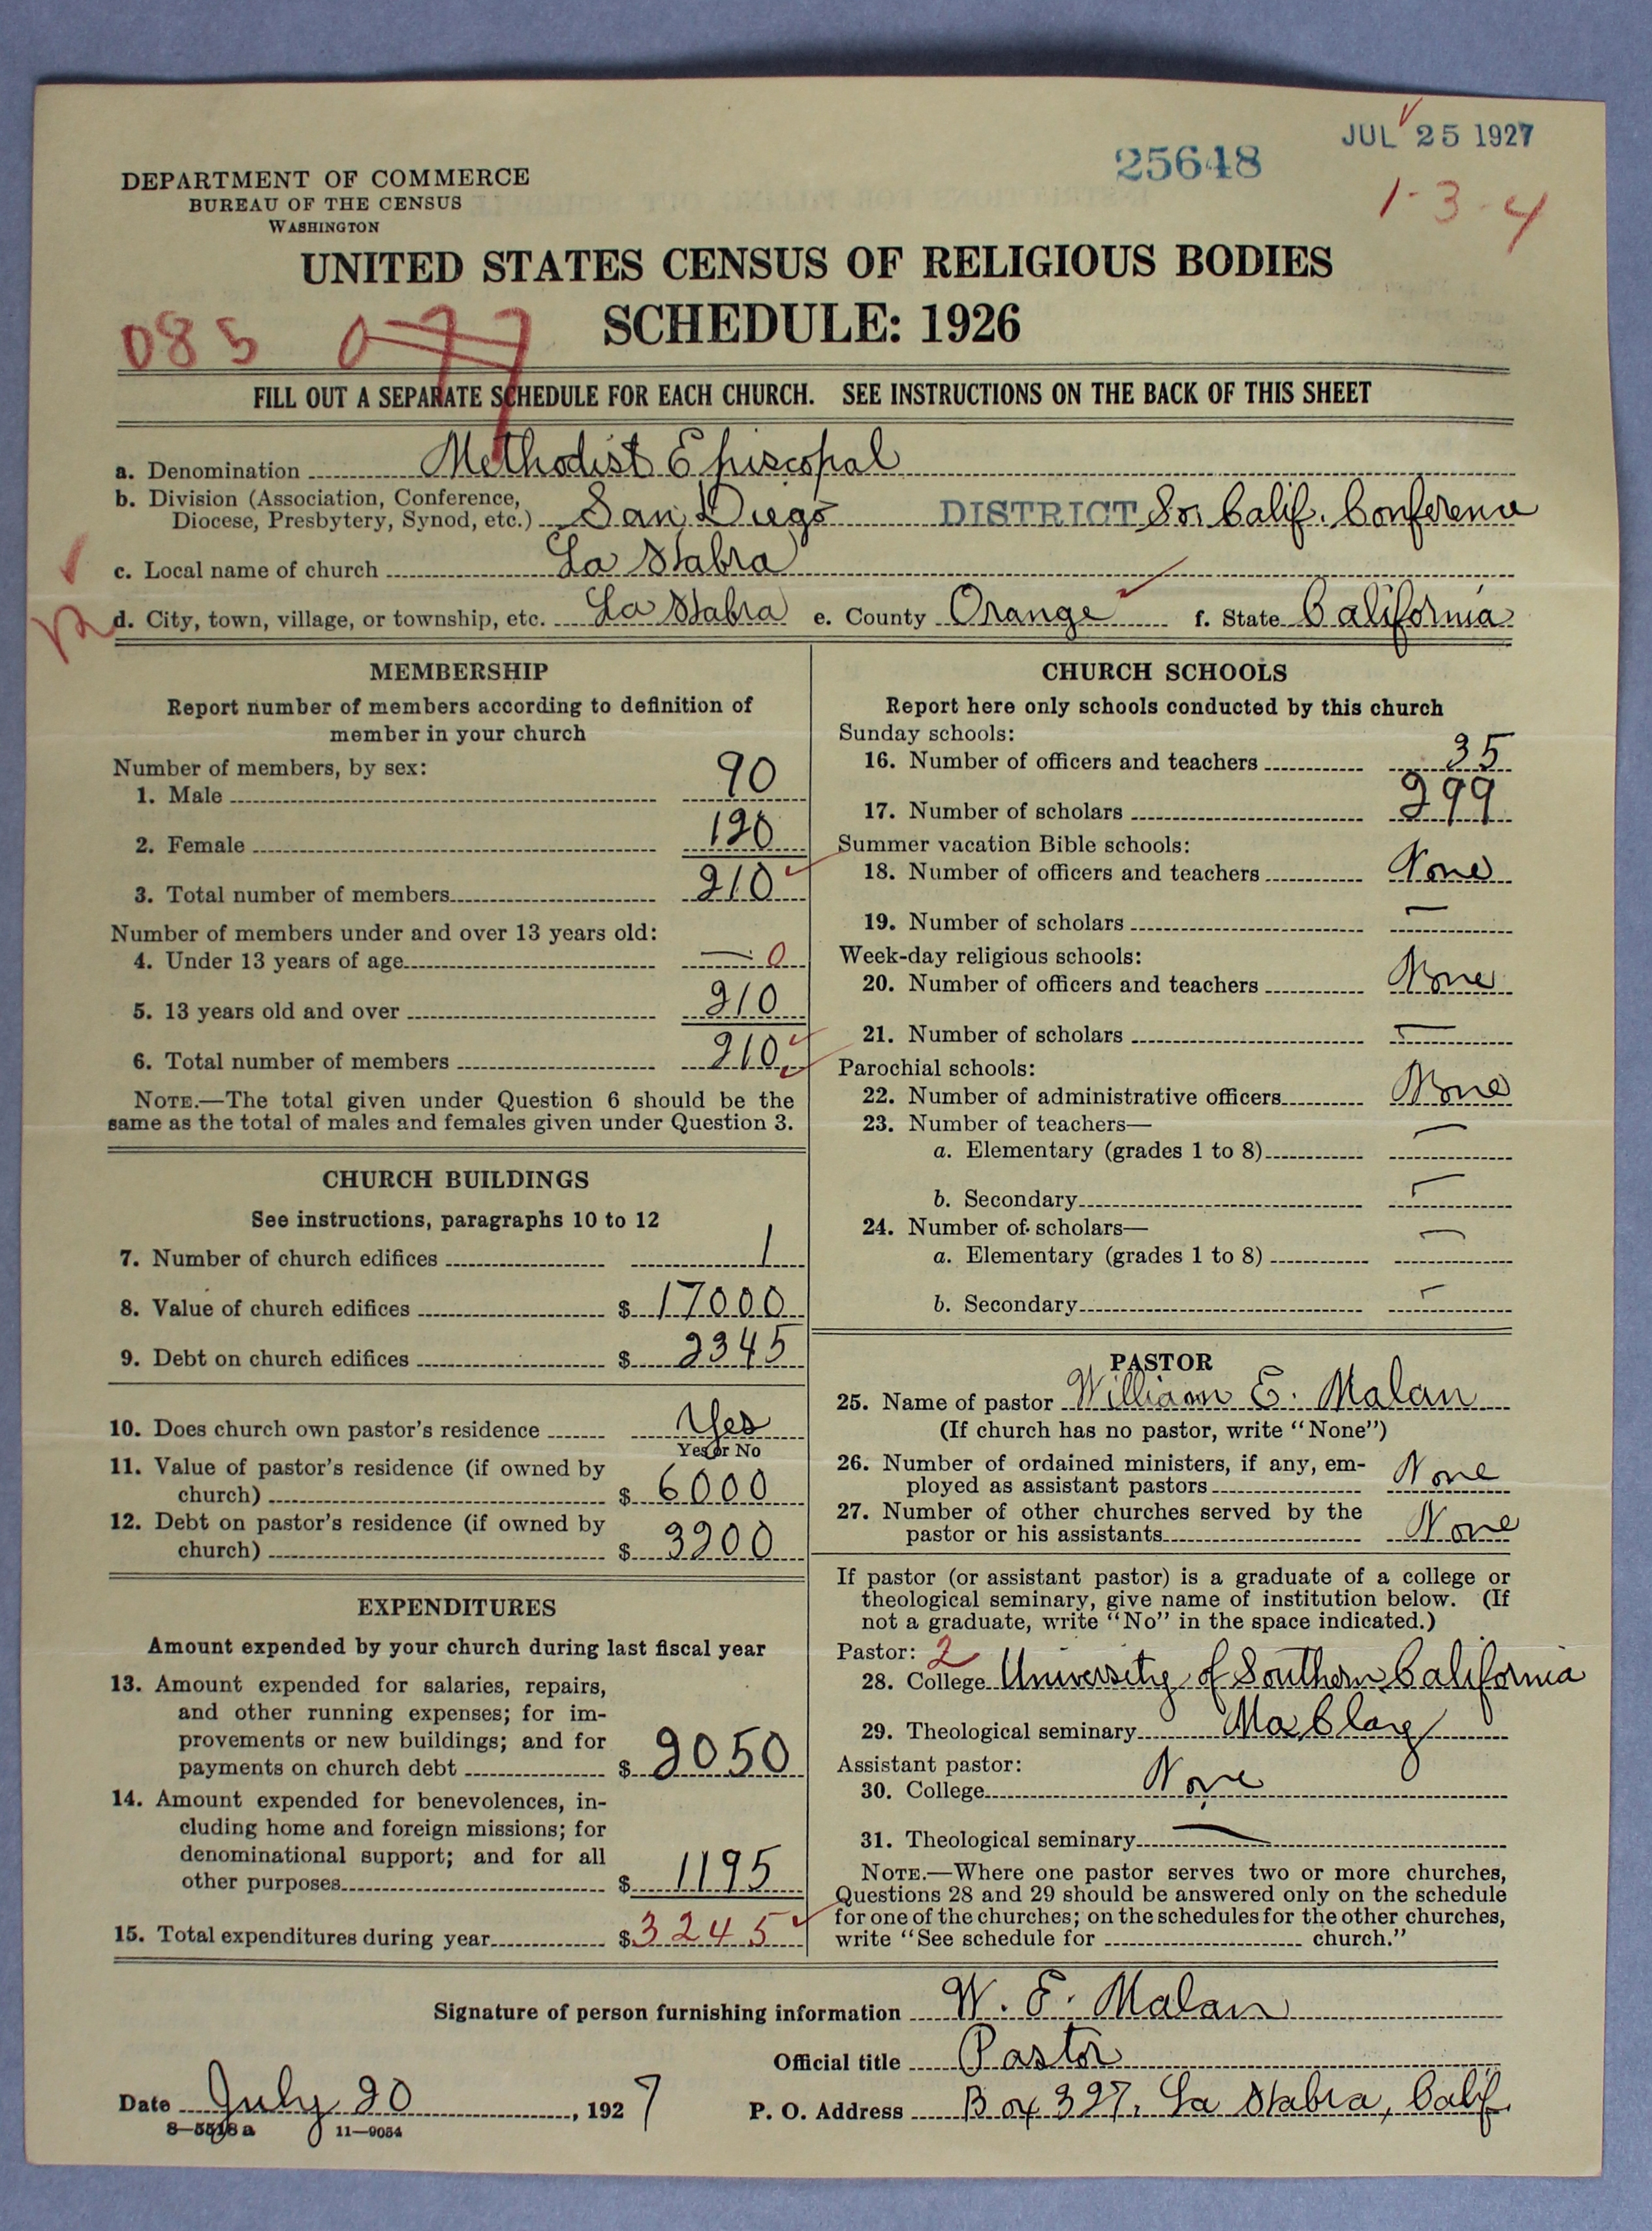 JUL 25 1927
25648
1-3-4
DEPARTMENT OF COMMERCE
BUREAU OF THE CENSUS
WASHINGTON
UNITED STATES CENSUS OF RELIGIOUS BODIES
SCHEDULE: 1926
085 077
FILL OUT A SEPARATE SCHEDULE FOR EACH CHURCH. SEE INSTRUCTIONS ON THE BACK OF THIS SHEET
a. Denomination Methodist Episcopal
b. Division (Association, Conference,
Diocese, Presbytery, Synod, etc.) San Diego DISTRICT So. Calif. Conference
c. Local name of church La Habra
d. City, town, village, or township, etc. La Habra e. County Orange f. State California
MEMBERSHIP
Report number of members according to definition of
member in your church
Number of members, by sex:
1. Male 90
2. Female 120
3. Total number of members 210
Number of members under and over 13 years old:
4. Under 13 years of age — 0
5. 13 years old and over 210
6. Total number of members 210
NOTE.—The total given under Question 6 should be the
same as the total of males and females given under Question 3.
CHURCH BUILDINGS
See instructions, paragraphs 10 to 12
7. Number of church edifices 1
8. Value of church edifices $ 17000
9. Debt on church edifices $ 2345
10. Does church own pastor's residence Yes
Yes or No
11. Value of pastor's residence (if owned by
church) $ 6000
12. Debt on pastor's residence (if owned by
church) $ 3200
EXPENDITURES
Amount expended by your church during last fiscal year
13. Amount expended for salaries, repairs,
and other running expenses; for im-
provements or new buildings; and for
payments on church debt $ 2050
14. Amount expended for benevolences, in-
cluding home and foreign missions; for
denominational support; and for all
other purposes $ 1195
15. Total expenditures during year $ 3245
CHURCH SCHOOLS
Report here only schools conducted by this church
Sunday schools:
16. Number of officers and teachers 35
17. Number of scholars 299
Summer vacation Bible schools:
18. Number of officers and teachers None
19. Number of scholars —
Week-day religious schools:
20. Number of officers and teachers None
21. Number of scholars —
Parochial schools:
22. Number of administrative officers None
23. Number of teachers—
a. Elementary (grades 1 to 8) —
b. Secondary —
24. Number of scholars—
a. Elementary (grades 1 to 8) —
b. Secondary —
PASTOR
25. Name of pastor William E. Malan
(If church has no pastor, write "None")
26. Number of ordained ministers, if any, em-
ployed as assistant pastors None
27. Number of other churches served by the
pastor or his assistants None
If pastor (or assistant pastor) is a graduate of a college or
theological seminary, give name of institution below. (If
not a graduate, write "No" in the space indicated.)
Pastor: 2
28. College University of Southern California
29. Theological seminary Maclay
Assistant pastor:
30. College None
31. Theological seminary —
NOTE.—Where one pastor serves two or more churches,
Questions 28 and 29 should be answered only on the schedule
for one of the churches; on the schedules for the other churches,
write "See schedule for church."
Signature of person furnishing information W. E. Malan
Official title Pastor
Date July 20, 1927 P. O. Address Box 327, La Habra, Calif.
8—5518a 11—9054